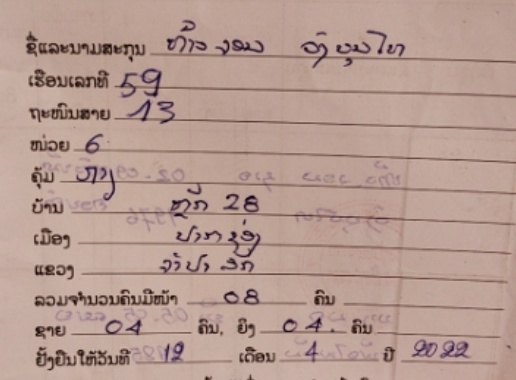 ຊື່ແລະນາມສະກຸນ ທ້າວ ຈອມ
ເຮືອນເລກທີ 59
ຖະໜົນສາຍ 13
ໜ່ວຍ 6
ຄຸ້ມ ກາງ
ບ້ານ ຫຼັກ 28
ເມືອງ ປາກຊ່ອງ
ແຂວງ ຈຳປາສັກ
ລວມຈຳນວນຄົນມີໜ້າ 08 ຄົນ
ຊາຍ 04 ຄົນ, ຍິງ 04. ຄົນ
ຢັ້ງຢືນໃຫ້ວັນທີ 12 ເດືອນ 4 ປີ 2022